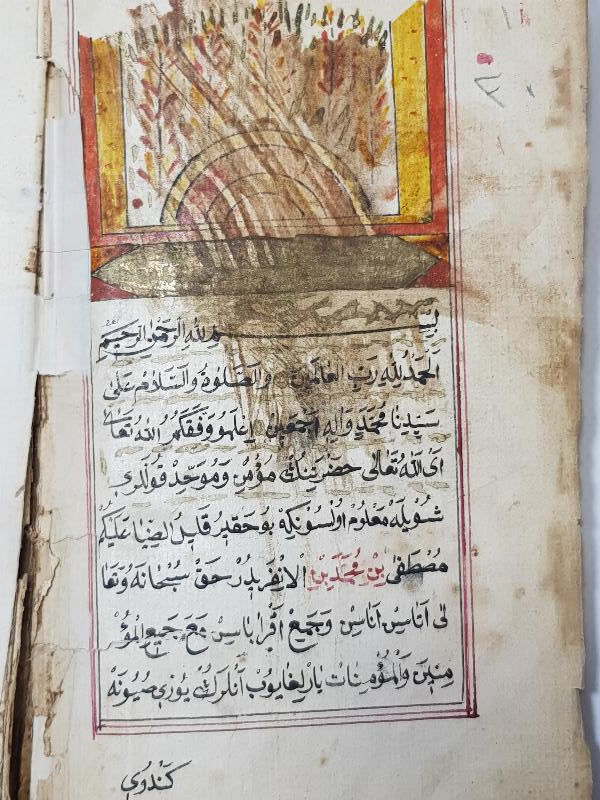 بسم الله الرحمن الرحيم
اَلْحَمْدُ لِلّٰهِ رَبِّ الْعَالَمِينَ وَالصَّلٰوةُ وَالسَّلَامُ عَلٰى
سَيِّدِنَا مُحَمَّدٍ وَاٰلِهِ اَجْمَعِينَ اِعْلَمُوا وَفَّقَكُمُ اللّٰهُ تَعَالٰى
اَى اللّٰه تَعَالٰى حَضْرَتِنِكْ مُؤْمِنْ وَمُوَحِّدْ قُولْلَرِى
شُويْلَه مَعْلُومْ اُولْسُونْكِه بُو حَقِيرُ قَلِيلُ الْبِضَاعَه كِمْ
مُصْطَفٰى بِنْ مُحَمَّدْ بِنْ دُرْ حَقْ سُبْحَانَهُ وَتَعَا
لٰى اَتَاسِنْ اَنَاسِنْ وَجَمِيعْ اَقْرِبَاسِنْ مَعَ جَمِيعِ الْمُؤْ
مِنِينَ وَالْمُؤْمِنَاتْ يَارْلِغَايُوبْ اَنْلَرِكْ يُوزِى صُيُونَه
كندوى